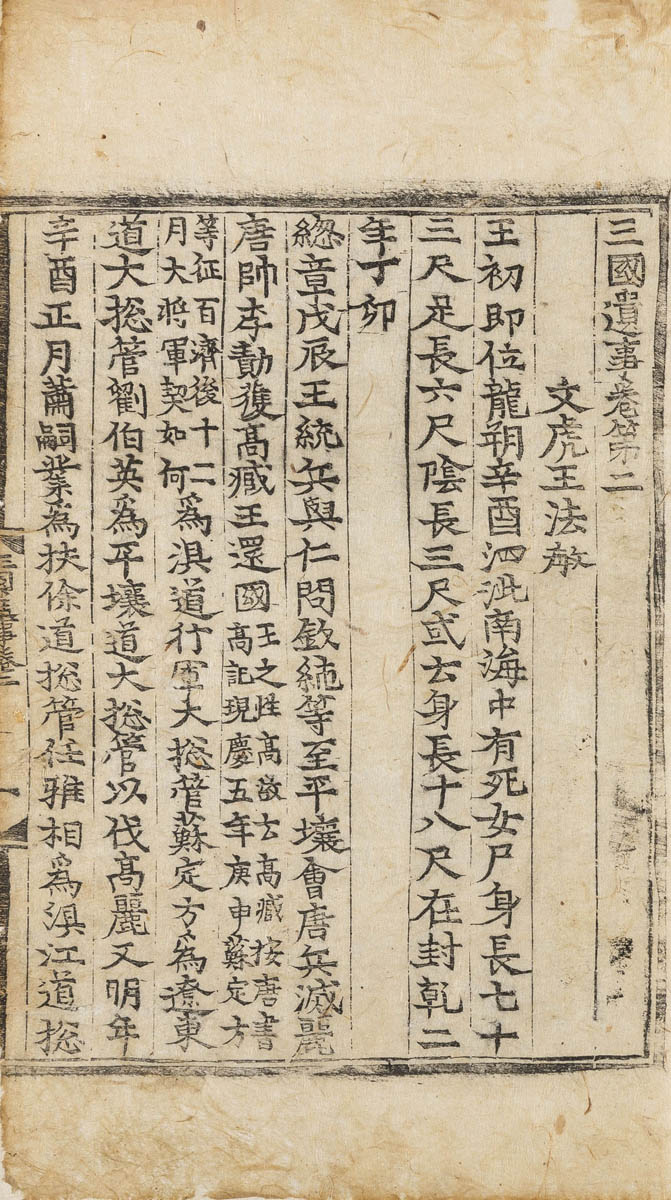 三國遺事卷第二
文虎王法敏
王初即位龍朔辛酉泗沘南海中有死女尸身長七十
三尺足長六尺陰長三尺或云身長十八尺在封乾二
年丁卯
緫章戊辰王統兵與仁問欽純等至平壤會唐兵滅麗
唐帥李勣獲髙臧王還國
王之姓髙故云髙臧按唐書
髙記現慶五年庚申蘇定方
等征百濟後十二
月大將軍契如何
爲浿道行軍大緫管蘇定方爲遼東
道大緫管劉伯英爲平壤道大緫管以伐髙麗又明年
辛酉正月蕭嗣業爲扶徐道緫管任雅相爲浿江道緫
三國遺事卷二